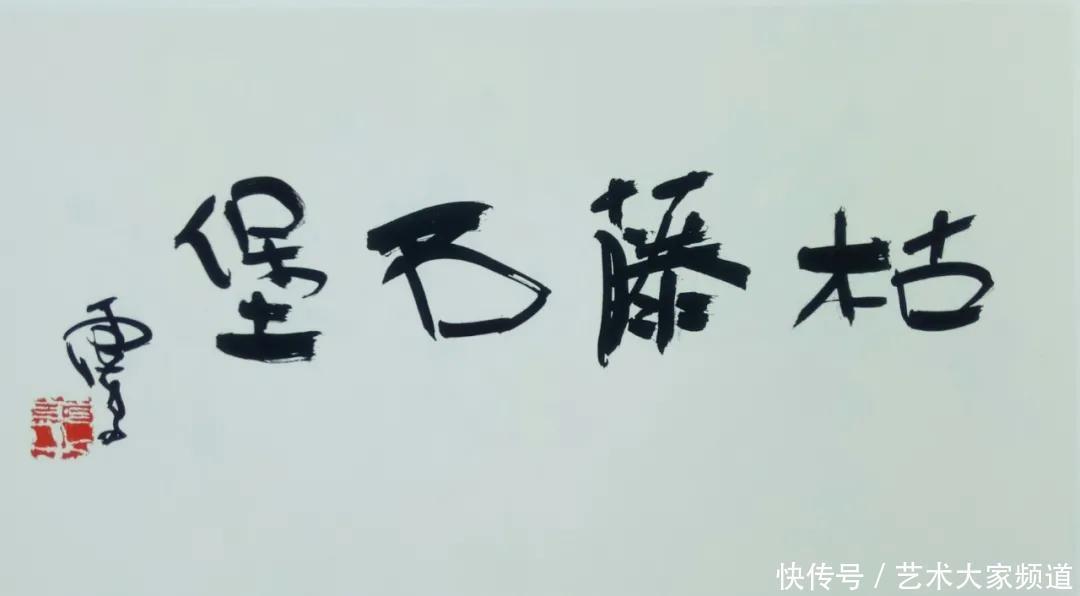 枯藤石堡
快传号 / 艺术大家频道